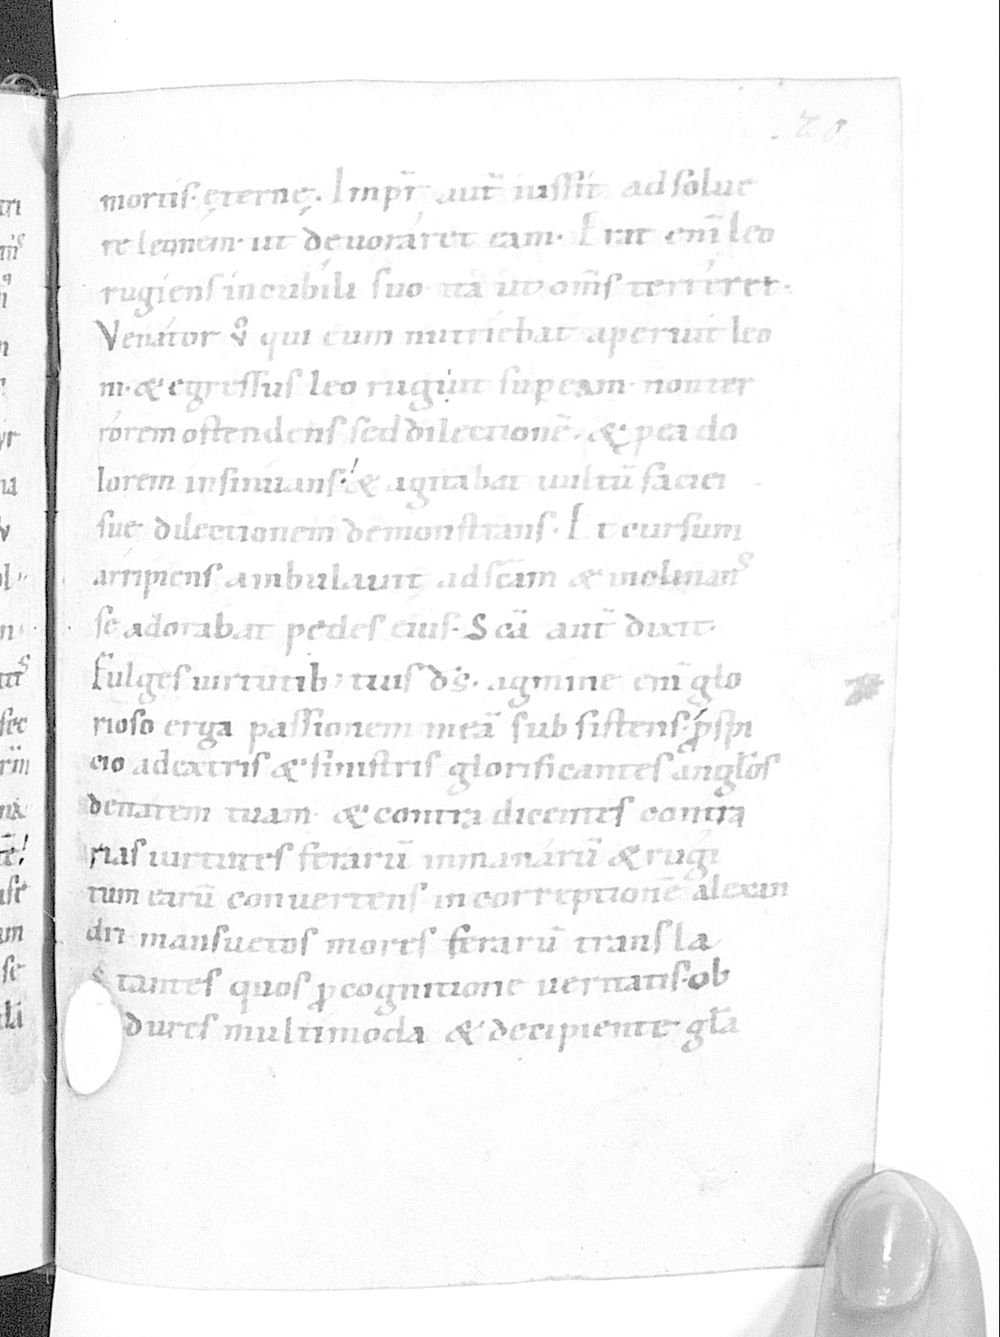 20
mortis. ęternę. Imp̄r aut̄ iussit adsolue
re leonem. ut deuoraret eam. Erat eni̅ leo
rugiens incubili suo ita ut om̅s terreret.
Venator v̊ qui eum nutriebat aperuit leo
ni. & egressus leo rugiit sup eam. nonter
rorem ostendens sed dilectionē. & pea do
lorem insinuans. & agitabat uultū faciei
sue dilectionem demonstrans. Et cursum
arripiens ambulauit ad sc̄am & inclinans
se adorabat pedes eius. Sc̄a aut̄ dixit.
Fulges uirtutib; tuis d̄s. agmine eni̅ glo
rioso erga passionem meā sub sistens.
cio adextris & sinistris glorificantes anglōs
denatem tuam. & contra dicentes contra
rias uirtutes ferarū inmanarū & rugi
tum earū conuertens in correptionē alexan
dri mansuetos mores ferarū transla
tantes quos ꝓcognitione ueritatis. ob
dures multimoda & decipiente gl̄a